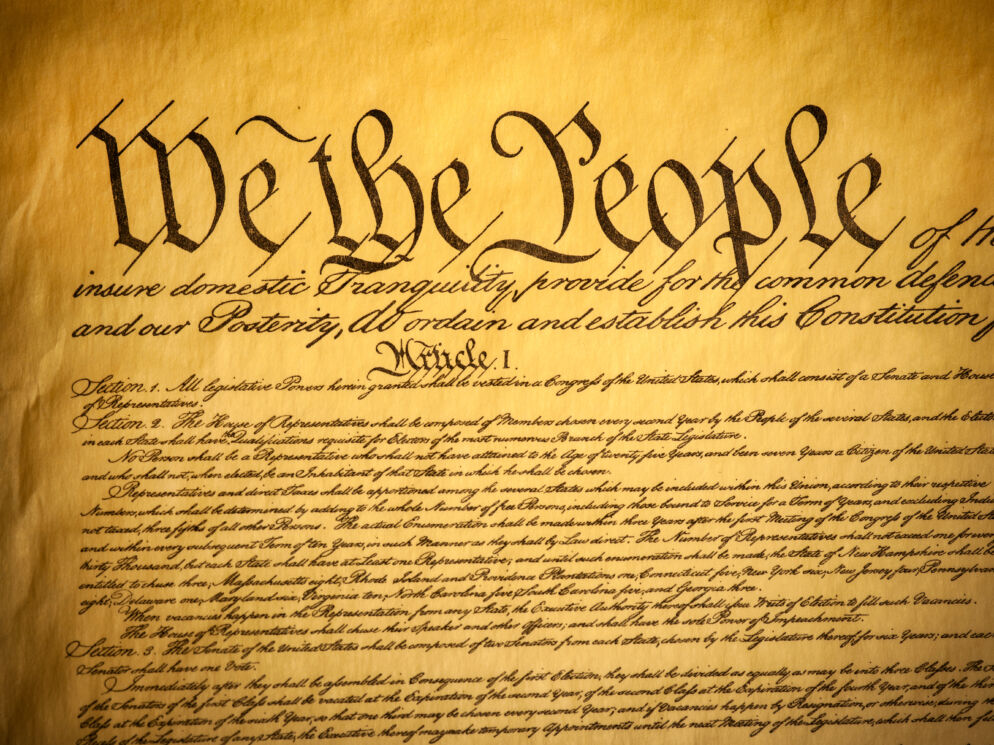 We the People of th
insure domestic Tranquility, provide for the common defenc
and our Posterity, do ordain and establish this Constitution f
Article. I.
Section. 1. All legislative Powers herein granted shall be vested in a Congress of the United States, which shall consist of a Senate and House
of Representatives.
Section. 2. The House of Representatives shall be composed of Members chosen every second Year by the People of the several States, and the Elect
in each State shall have the Qualifications requisite for Electors of the most numerous Branch of the State Legislature.
No Person shall be a Representative who shall not have attained to the Age of twenty five Years, and been seven Years a Citizen of the United Stat
and who shall not, when elected, be an Inhabitant of that State in which he shall be chosen.
Representatives and direct Taxes shall be apportioned among the several States which may be included within this Union, according to their respective
Numbers, which shall be determined by adding to the whole Number of free Persons, including those bound to Service for a Term of Years, and excluding Indian
not taxed, three fifths of all other Persons. The actual Enumeration shall be made within three Years after the first Meeting of the Congress of the United Sta
and within every subsequent Term of ten Years, in such Manner as they shall by Law direct. The Number of Representatives shall not exceed one for ever
thirty Thousand, but each State shall have at Least one Representative; and until such enumeration shall be made, the State of New Hampshire shall be
entitled to chuse three, Massachusetts eight, Rhode Island and Providence Plantations one, Connecticut five, New York six, New Jersey four, Pennsylvan
eight, Delaware one, Maryland six, Virginia ten, North Carolina five, South Carolina five, and Georgia three.
When vacancies happen in the Representation from any State, the Executive Authority thereof shall issue Writs of Election to fill such Vacancies.
The House of Representatives shall chuse their Speaker and other Officers; and shall have the sole Power of Impeachment.
Section. 3. The Senate of the United States shall be composed of two Senators from each State, chosen by the Legislature thereof, for six Years; and eac
Senator shall have one Vote.
Immediately after they shall be assembled in Consequence of the first Election, they shall be divided as equally as may be into three Classes. The S
of the Senators of the first Class shall be vacated at the Expiration of the second Year, of the second Class at the Expiration of the fourth Year, and of the thir
Class at the Expiration of the sixth Year, so that one third may be chosen every second Year; and if Vacancies happen by Resignation, or otherwise, during the
Recess of the Legislature of any State, the Executive thereof may make temporary Appointments until the next Meeting of the Legislature, which shall then fil